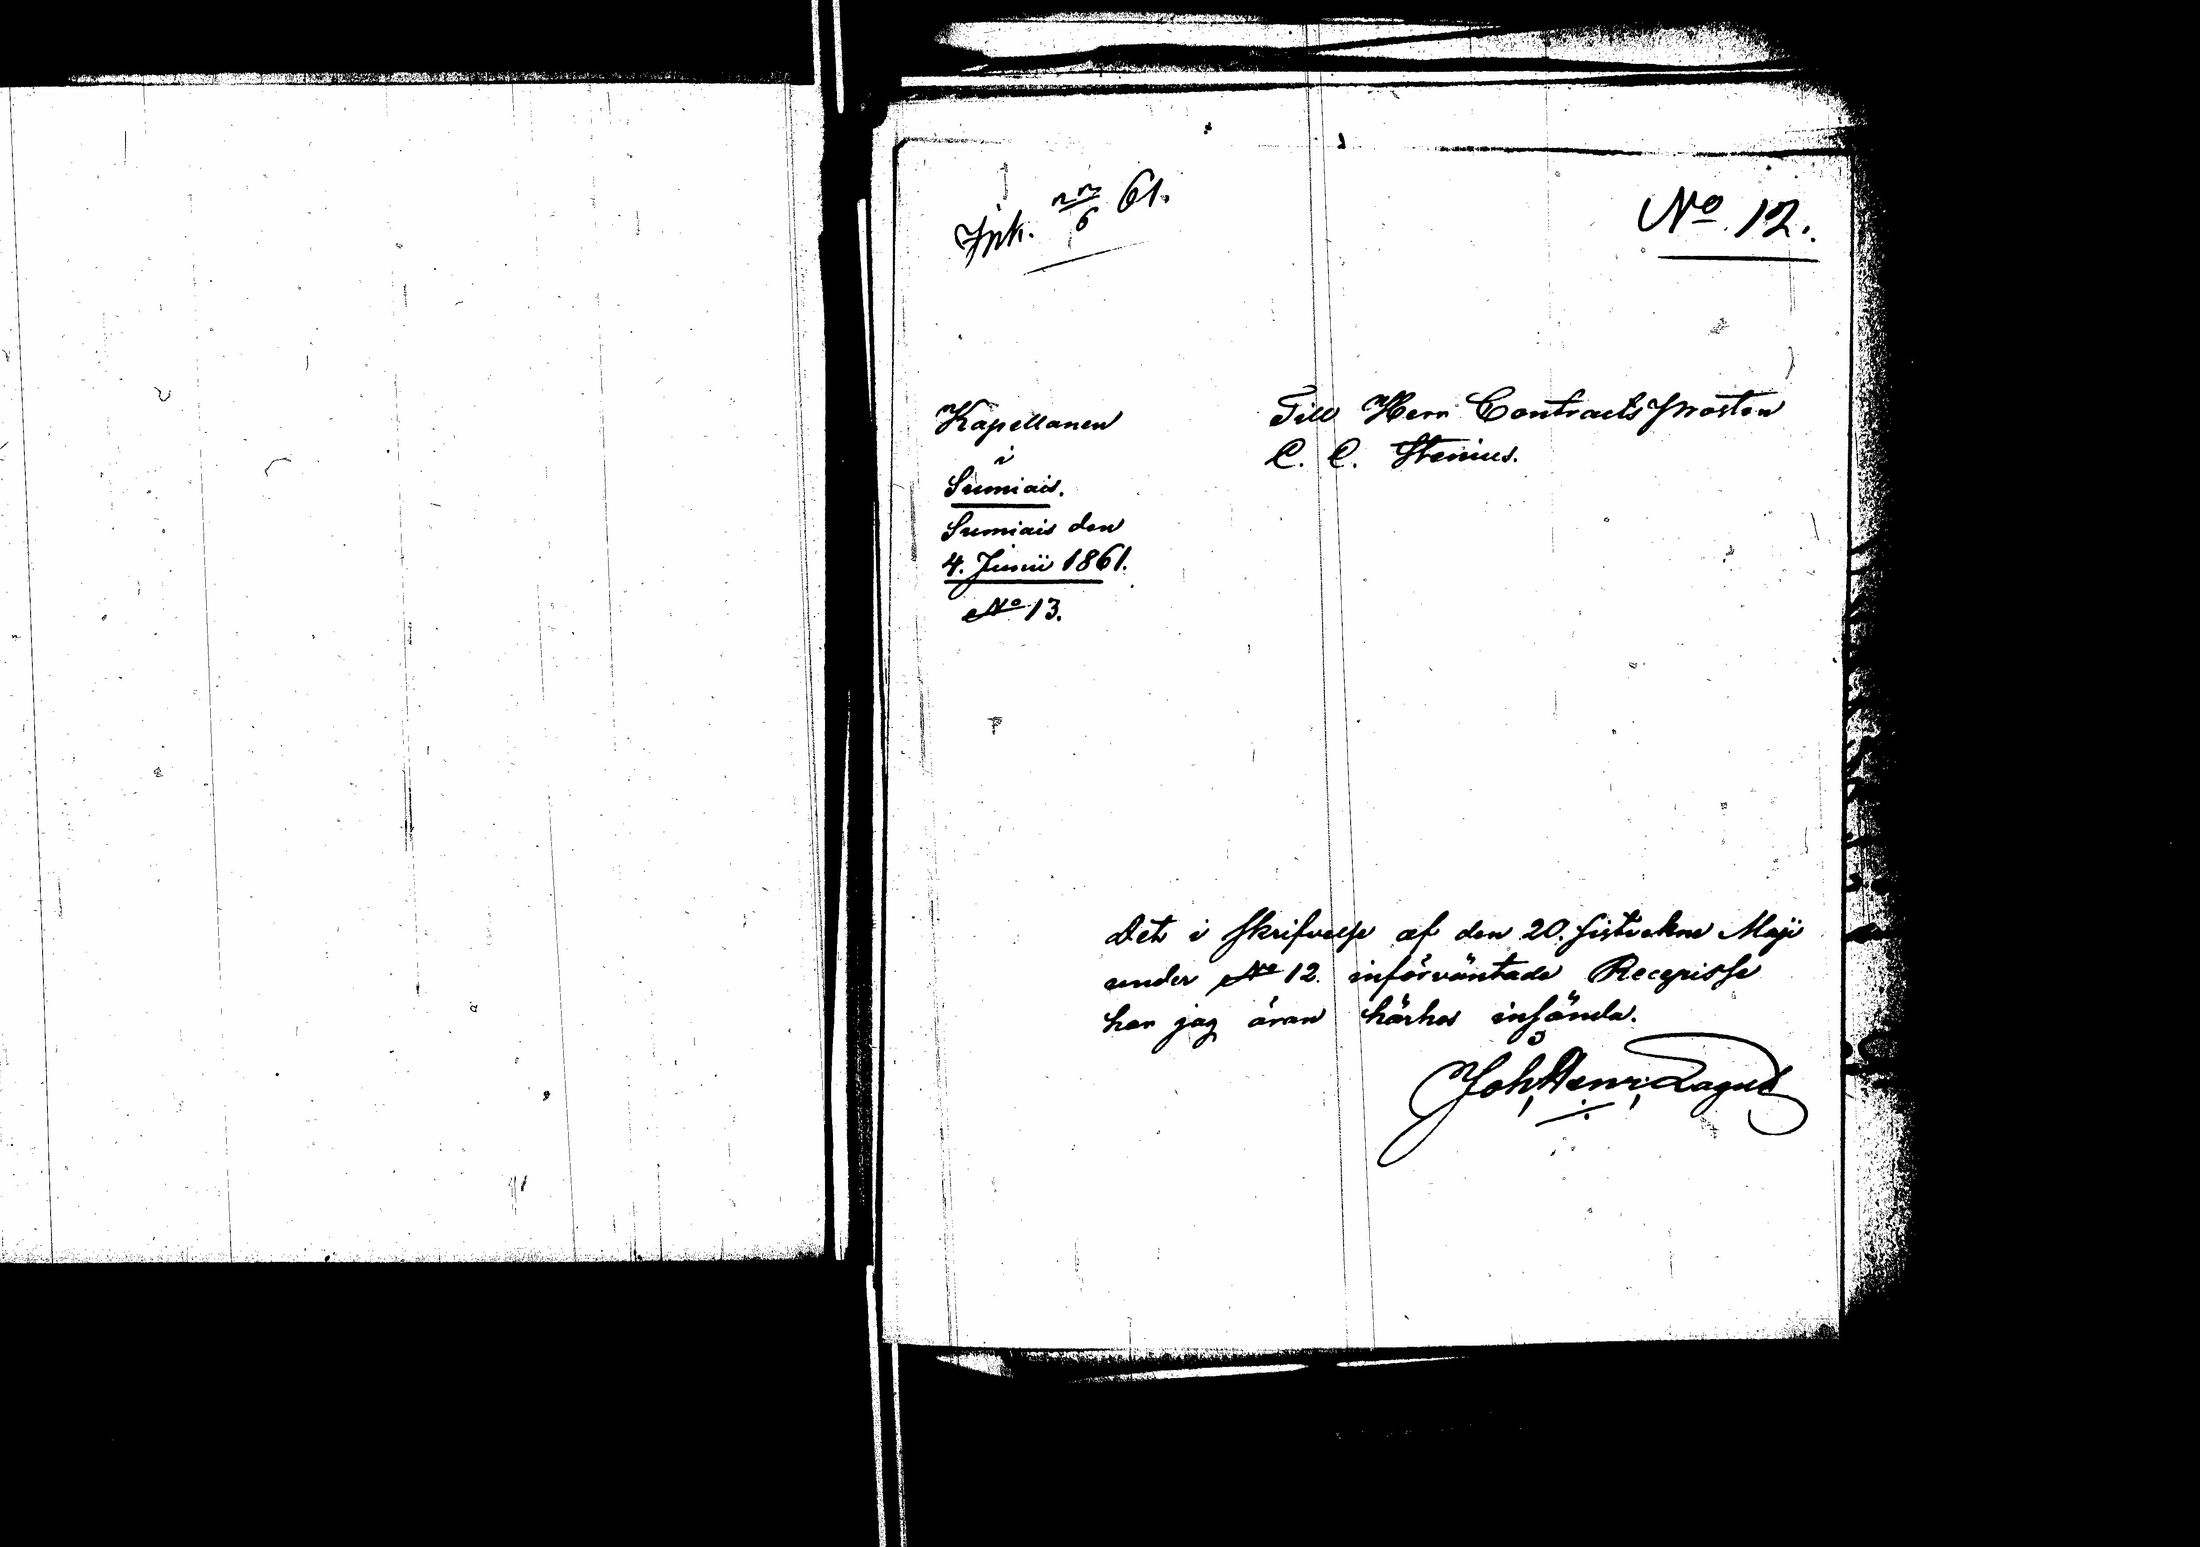 Ink. 22/6 61.
No. 12.
Kapellanen
i
Sumiais.
Sumiais den
4. Junii 1861.
No 13.
Till Herr ContractsProsten
C. C. Stenius.
Det i skrifvelse af den 20. sistvekne Maji
under No 12. införväntade Recepisse
har jag äran härhos insända.
Joh, Henr: Lagus